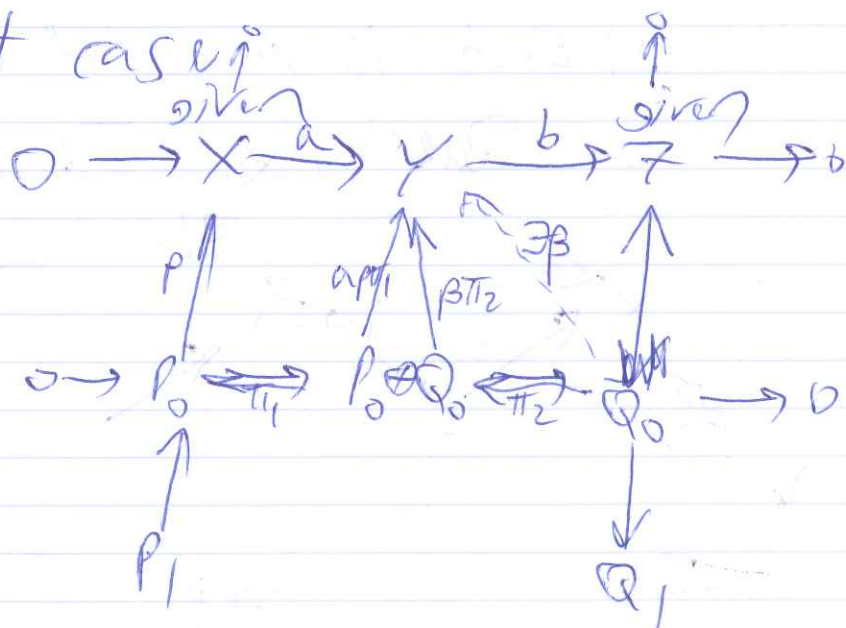 case 0 0
given given
0 → X a → Y b → Z → 0
∃β
p apπ₁ βπ₂
0 → P₀ ⇌ π₁ P₀ ⊕ Q₀ ⇌ π₂ Q₀ → 0
P₁ Q₁